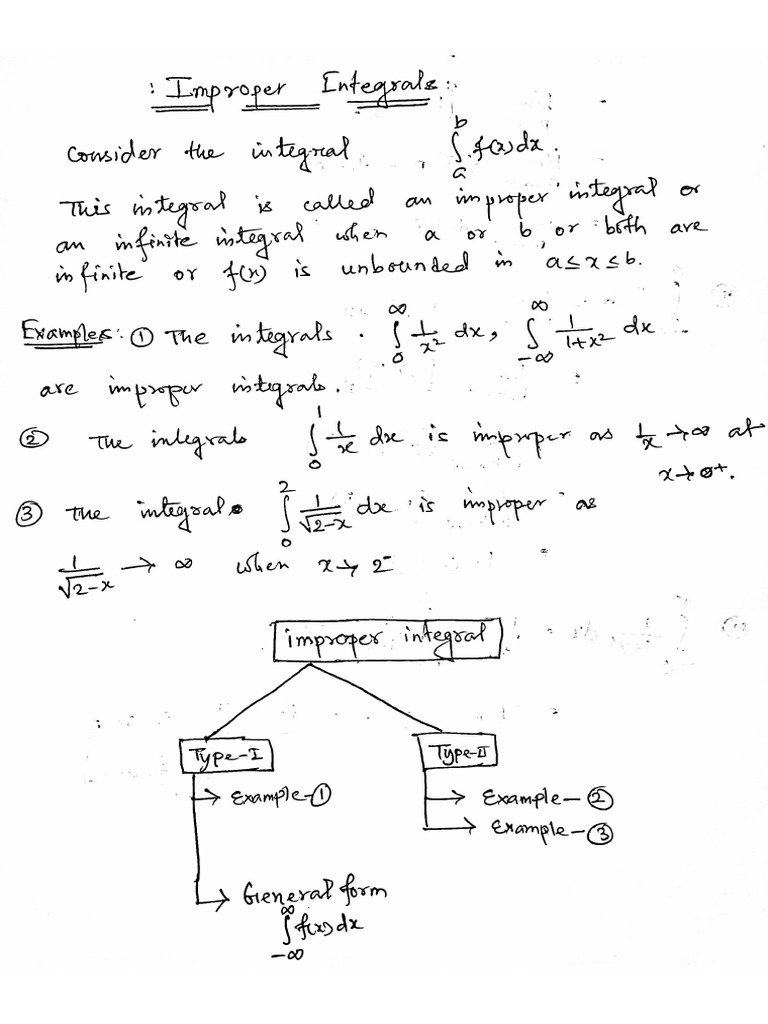 : Improper Integrals :
Consider the integral ∫_a^b f(x) dx.
This integral is called an improper integral or
an infinite integral when a or b, or both are
infinite or f(x) is unbounded in a ≤ x ≤ b.
Examples: ① The integrals ∫_0^∞ 1/x² dx, ∫_{-∞}^∞ 1/(1+x²) dx
are improper integrals.
② The integrals ∫_0^1 1/x dx is improper as 1/x → ∞ at
x → 0⁺.
③ The integral ∫_0^2 1/√(2-x) dx is improper as
1/√(2-x) → ∞ when x → 2⁻
improper integral
Type-I
Type-II
→ Example-①
→ Example-②
→ Example-③
→ General form
∫_{-∞}^∞ f(x) dx